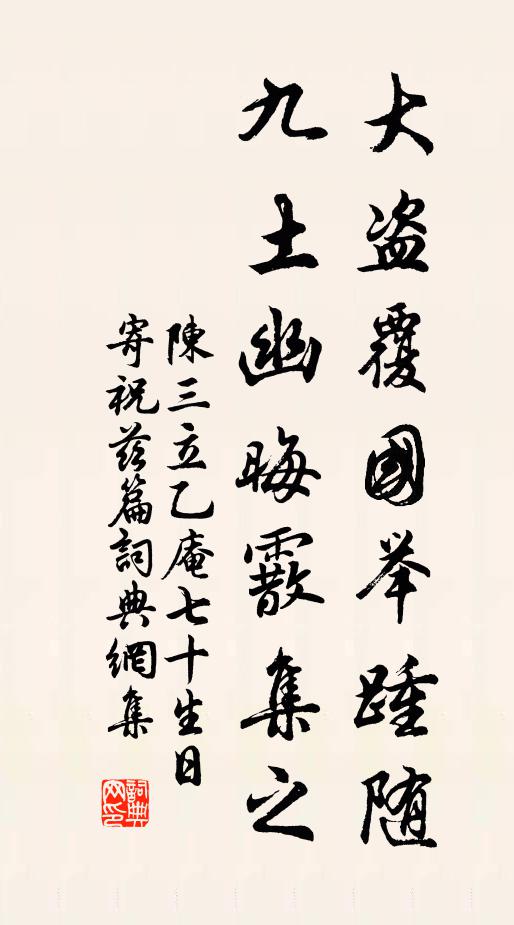 大盗覆國举踵随
九土幽晦霰集之
陳三立乙庵七十生日
寄祝兹篇詞典網集
詞典网印